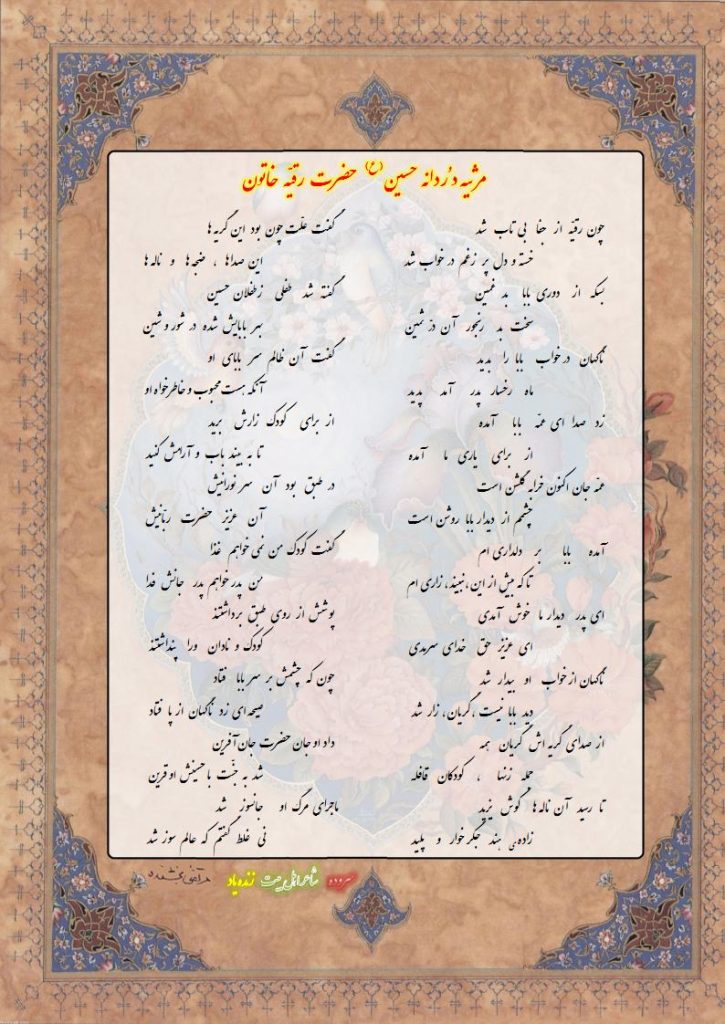 مرثیه دُردانه حسین (ع) حضرت رقیّه خاتون
چون رقیّه از جفا بی تاب شد
خسته و دل پر زغم در خواب شد
بسکه از دوری بابا بد غمین
سخت بد رنجور آن درّ ثمین
ناگهان در خواب بابا را بدید
ماه رخسار پدر آمد پدید
زد صدا ای عمّه بابا آمده
از برای یاری ما آمده
عمّه جان اکنون خرابه گلشن است
چشمم از دیدار بابا روشن است
آمده بابا بر دلداری ام
تا که بیش از این، نبیند، زاری ام
ای پدر دیدار ما خوش آمدی
ای عزیز حق خدای سرمدی
ناگهان از خواب او بیدار شد
دید بابا نیست، گریان، زار شد
از صدای گریه اش گریان همه
جمله زنها ، کودکان قافله
تا رسید آن ناله ها گوش یزید
زاده‌ی هند جگر خوار و پلید
گفت علّت چون بود این گریه ها
این صداها ، ضجه ها و ناله ها
گفته شد طفلی زطفلان حسین
بهر بابایش شده در شور و شین
گفت آن ظالم سر بابای او
آنکه هست محبوب و خاطر خواه او
از برای کودک زارش برید
تا به بیند باب و آرامش کنید
در طبق بود آن سر نورانیش
آن عزیز حضرت ربّانیش
گفت کودک من نمی خواهم غذا
من پدر خواهم پدر جانش فدا
پوشش از روی طبق برداشتند
کودک و نادان ورا پنداشتند
چون که چشمش بر سر بابا فتاد
صیحه ای زد ناگهان از پا فتاد
داد او جان حضرت جان آفرین
شد به جنّت با حسینش او قرین
ماجرای مرگ او جانسوز شد
نی غلط گفتم که عالم سوز شد
سروده شاعر اهل بیت زنده یاد